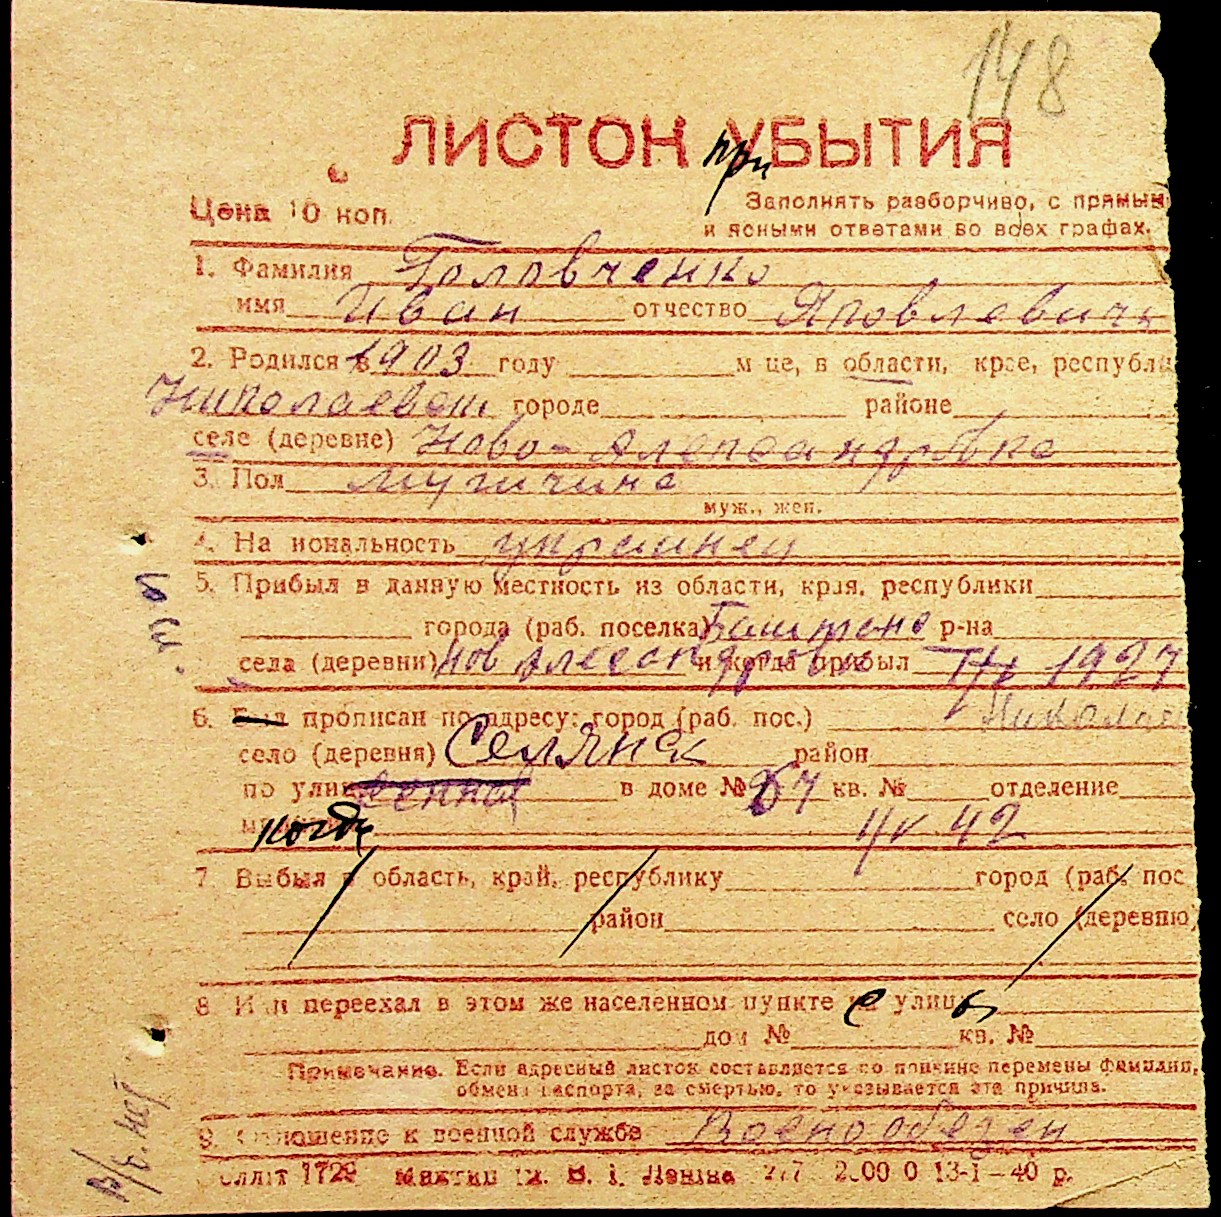 148
ЛИСТОК при УБЫТИЯ
Цена 10 коп.
Заполнять разборчиво, с прямыми
и ясными ответами во всех графах.
1. Фамилия Головченко
имя Иван отчество Яковлевич
2. Родился в 1903 году м-це, в области, крае, республи
Николаевск городе районе
селе (деревне) Ново-Александровка
3. Пол мужчина
муж., жен.
4. Национальность украинец
5. Прибыл в данную местность из области, края, республики
города (раб. поселка) Баштано р-на
села (деревни) и когда прибыл 1927
6. Был прописан по адресу: город (раб. пос.) Николаев
село (деревня) Селянск район
по улице в доме № 57 кв. № отделение
когда 42
7. Выбыл в область, край, республику город (раб. пос
район село (деревню)
8. Или переехал в этом же населенном пункте с улицы
дом № кв. №
Примечание. Если адресный листок составляется по причине перемены фамилии,
обмена паспорта, за смертью, то указывается эта причина.
9. Отношение к военной службе Военообязан
1729 В. І. Леніна 13-I-40 р.